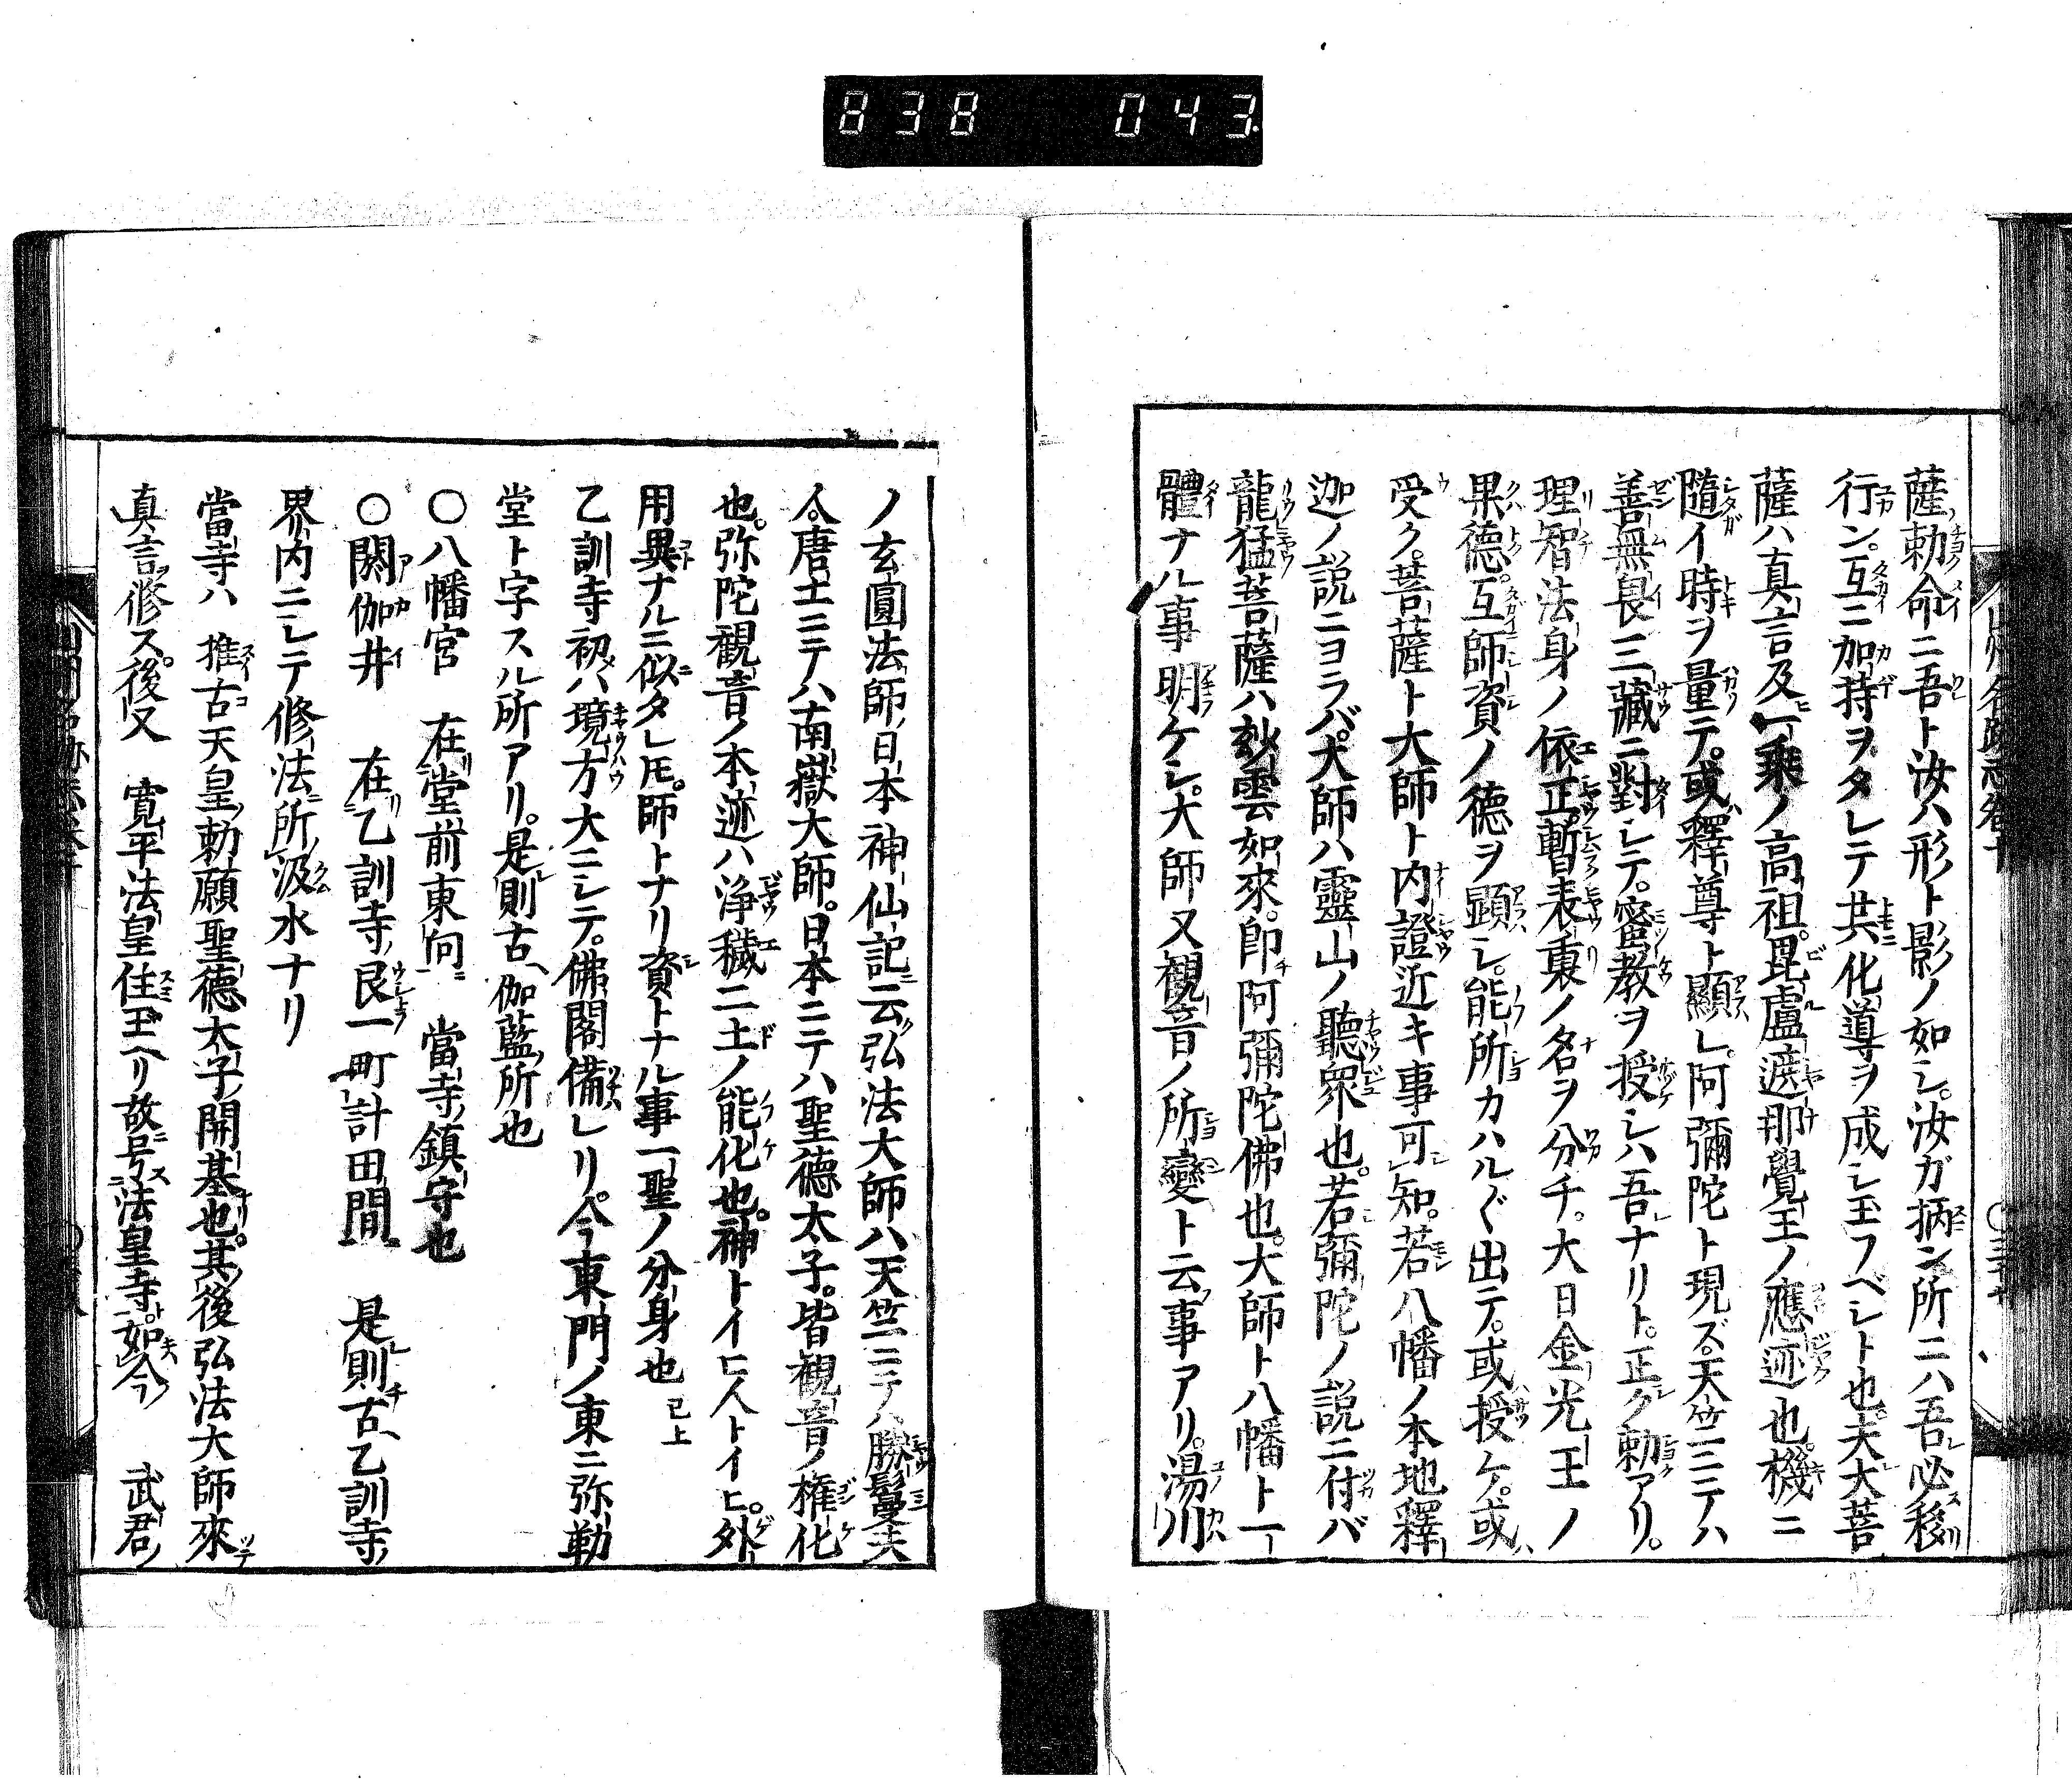 838 043
薩勅命ニ吾ト汝ハ形ト影ノ如シ。汝ガ柄ン所ニハ吾必移
行ン。互ニ加持ヲタレテ共化導ヲ成シ玉フベシト也。夫大菩
薩ハ真言及一乗ノ高祖。毘盧遮那覺王ノ應迹也。機ニ
隨イ時ヲ量テ。或釋尊ト顯レ。阿彌陀ト現ズ。天竺ニテハ
善無畏三藏ニ對シテ。密教ヲ授シハ吾ナリト。正ク勅アリ。
理智法身ノ依正。暫表裏ノ名ヲ分チ。大日金光王ノ
果德。互師資ノ德ヲ顯シ。能所カハル〲出テ。或授ケ。或
受ク。菩薩ト大師ト内證近キ事可知。若八幡ノ本地釋
迦ノ説ニヨラバ。大師ハ靈山ノ聽衆也。若彌陀ノ説ニ付バ
龍猛菩薩ハ妙雲如來。即阿彌陀佛也。大師ト八幡ト一
體ナル事明ケシ。大師又観音ノ所變ト云事アリ。湯川
ノ玄圓法師ノ日本神仙記ニ云ク弘法大師ハ天竺ニテハ勝鬘夫
人。唐土ニテハ南嶽大師。日本ニテハ聖德太子。皆観音ノ権化
也。弥陀観音ノ本迹ハ浄穢二土ノ能化也。神トイヒ人トイヒ。外
用異ナルニ似タレ𪜈。師トナリ資トナル事一聖ノ分身也 已上
乙訓寺初メハ境方大ニシテ。佛閣備レリ。今東門ノ東ニ弥勒
堂ト字スル所アリ。是則古ノ伽藍ノ所也
〇八幡宮 在堂前東向 當寺ノ鎮守也
〇閼伽井 在乙訓寺ノ艮一町計田間 是則古ヘ乙訓寺ノ
界内ニシテ修法ニ所汲水ナリ
當寺ハ 推古天皇ノ勅願聖德太子ノ開基也。其後弘法大師來テ
真言ヲ修ス。後又 寛平法皇住玉ヘリ故号法皇寺ト。如今 武君ノ